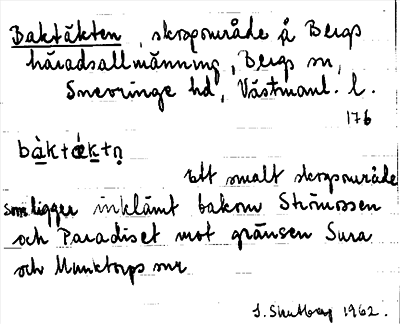 Baktäkten, skogsområde å Bergs
häradsallmänning, Bergs sn,
Snevringe hd, Västmanl. l.
176
bàktǽktn̥
Ett smalt skogsområde
som ligger inklämt bakom Strömossen
och Paradiset mot gränsen Sura
och Munktorps snr
1962.